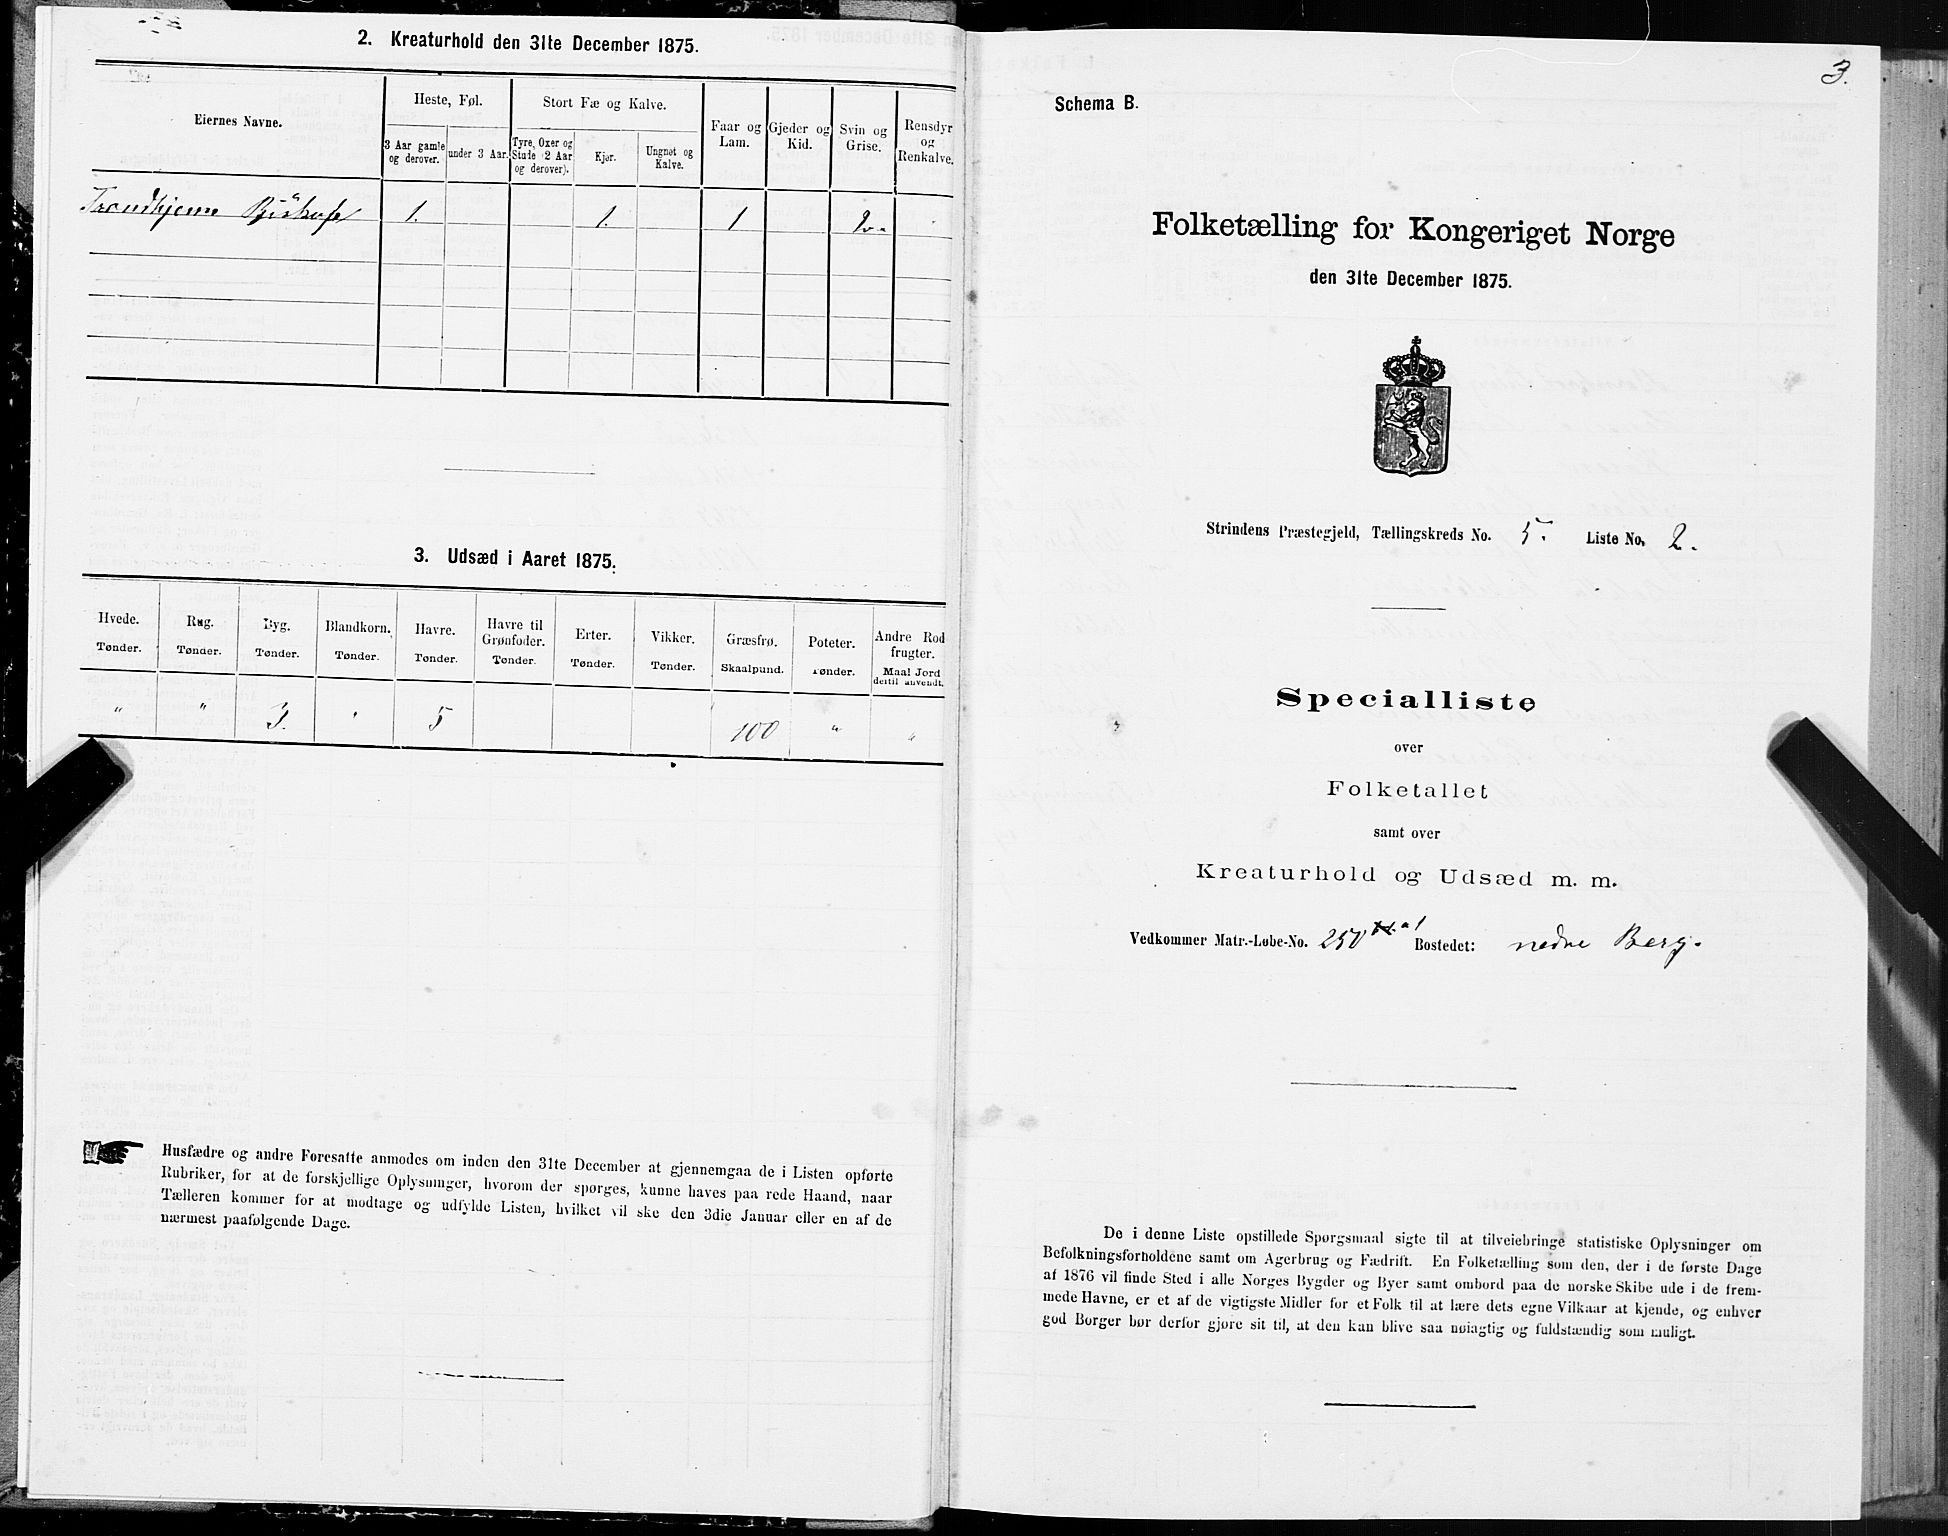 2. Kreaturhold den 31te December 1875.
Eiernes Navne.
Heste, Føl.
Stort Fæ og Kalve.
Faar og Lam.
Gjeder og Kid.
Svin og Grise.
Rensdyr og Renkalve.
3 Aar gamle og derover.
under 3 Aar.
Tyre, Oxer og Stude (2 Aar og derover).
Kjør.
Ungnøt og Kalve.
Trondhjems 1. 1. 1 2.
3. Udsæd i Aaret 1875.
Hvede. Rug. Byg. Blandkorn. Havre. Havre til Grønfoder. Erter. Vikker. Græsfrø. Poteter. Andre Rodfrugter.
Tønder. Tønder. Tønder. Tønder. Tønder. Tønder. Tønder. Tønder. Skaalpund. Tønder. Maal Jord dertil anvendt.
" " 3. " 5 100 " "
Husfædre og andre Foresatte anmodes om inden den 31te December at gjennemgaa de i Listen opførte
Rubriker, for at de forskjellige Oplysninger, hvorom der spørges, kunne haves paa rede Haand, naar
Tælleren kommer for at modtage og udfylde Listen, hvilket vil ske den 3die Januar eller en af de
nærmest paafølgende Dage.
3.
Schema B.
Folketælling for Kongeriget Norge
den 31te December 1875.
Strindens Præstegjeld, Tællingskreds No. 5. Liste No. 2.
Specialliste
over
Folketallet
samt over
Kreaturhold og Udsæd m. m.
Vedkommer Matr.-Løbe-No. 250 a1 Bostedet: nedre Berg.
De i denne Liste opstillede Spørgsmaal sigte til at tilveiebringe statistiske Oplysninger om
Befolkningsforholdene samt om Agerbrug og Fædrift. En Folketælling som den, der i de første Dage
af 1876 vil finde Sted i alle Norges Bygder og Byer samt ombord paa de norske Skibe ude i de frem-
mede Havne, er et af de vigtigste Midler for et Folk til at lære dets egne Vilkaar at kjende, og enhver
god Borger bør derfor gjøre sit til, at den kan blive saa nøiagtig og fuldstændig som muligt.